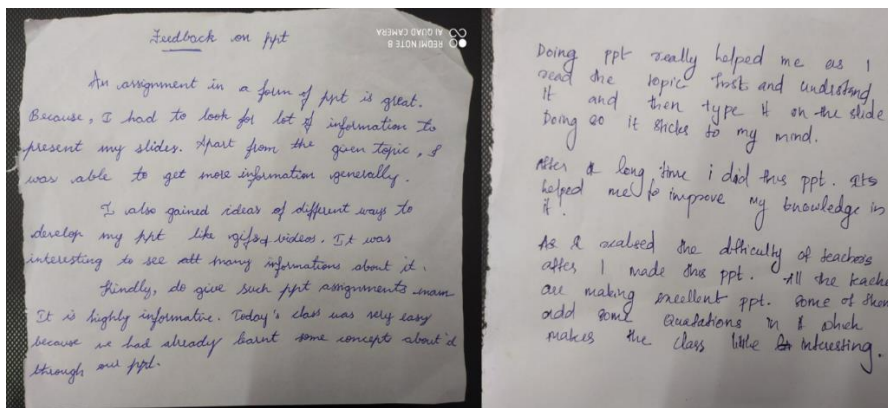 Feedback on ppt
REDMI NOTE 8
AI QUAD CAMERA
An assignment in a form of ppt is great.
Because, I had to look for lot of information to
present my slides. Apart from the given topic, I
was able to get more information generally.
I also gained ideas of different ways to
develop my ppt like gifs & videos. It was
interesting to see many informations about it.
Kindly, do give such ppt assignments mam
It is highly informative. Today's class was very easy
because we had already learnt some concepts about it
through our ppt.
Doing ppt really helped me as I
read the topic first and understand
it and then type it on the slide
Doing so it sticks to my mind.
After a long time i did this ppt. Its
helped me to improve my knowledge in
it.
As I realised the difficulty of teachers
after I made this ppt. All the teache
are making excellent ppt. some of them
add some Quatations in it which
makes the class little interesting.